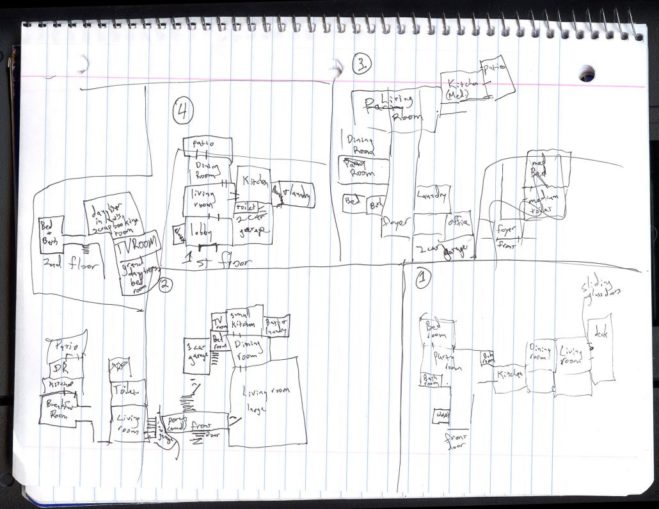 3
Patio
Kitchen
(Med)
Living
Room
4
Patio
Dining
Room
Kitchen
living
room
toilet
2 car
garage
lobby
1st floor
Dining
Room
Room
Bed
Bth
foyer
Laundry
office
2 car
garage
med
Bed
medium
foyer
front
Bed
+
Bath
2nd floor
room
TV ROOM
grand
daughters
bed
room
2
1
sliding
glass doors
deck
Bed
room
room
Bath
room
Kitchen
Dining
room
Living
room
front
door
Patio
DR
Kitchen
Breakfast
Room
Toilet
Living
room
TV
room
small
kitchen
Dining
room
Bed
room
3 car
garage
Living room
large
front
door